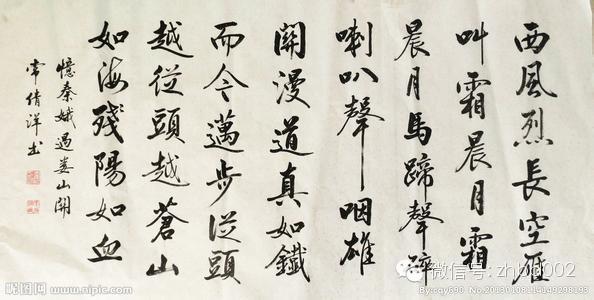 西風烈長空雁
叫霜晨月霜
晨月馬蹄聲碎
喇叭聲咽雄
關漫道真如鐵
而今邁步從頭
越從頭越蒼山
如海殘陽如血
憶秦娥過婁山關
常倩洋书
昵图网
www.nipic.com
微信号: zhbd002
By:cqy690 No.20130108111449298193